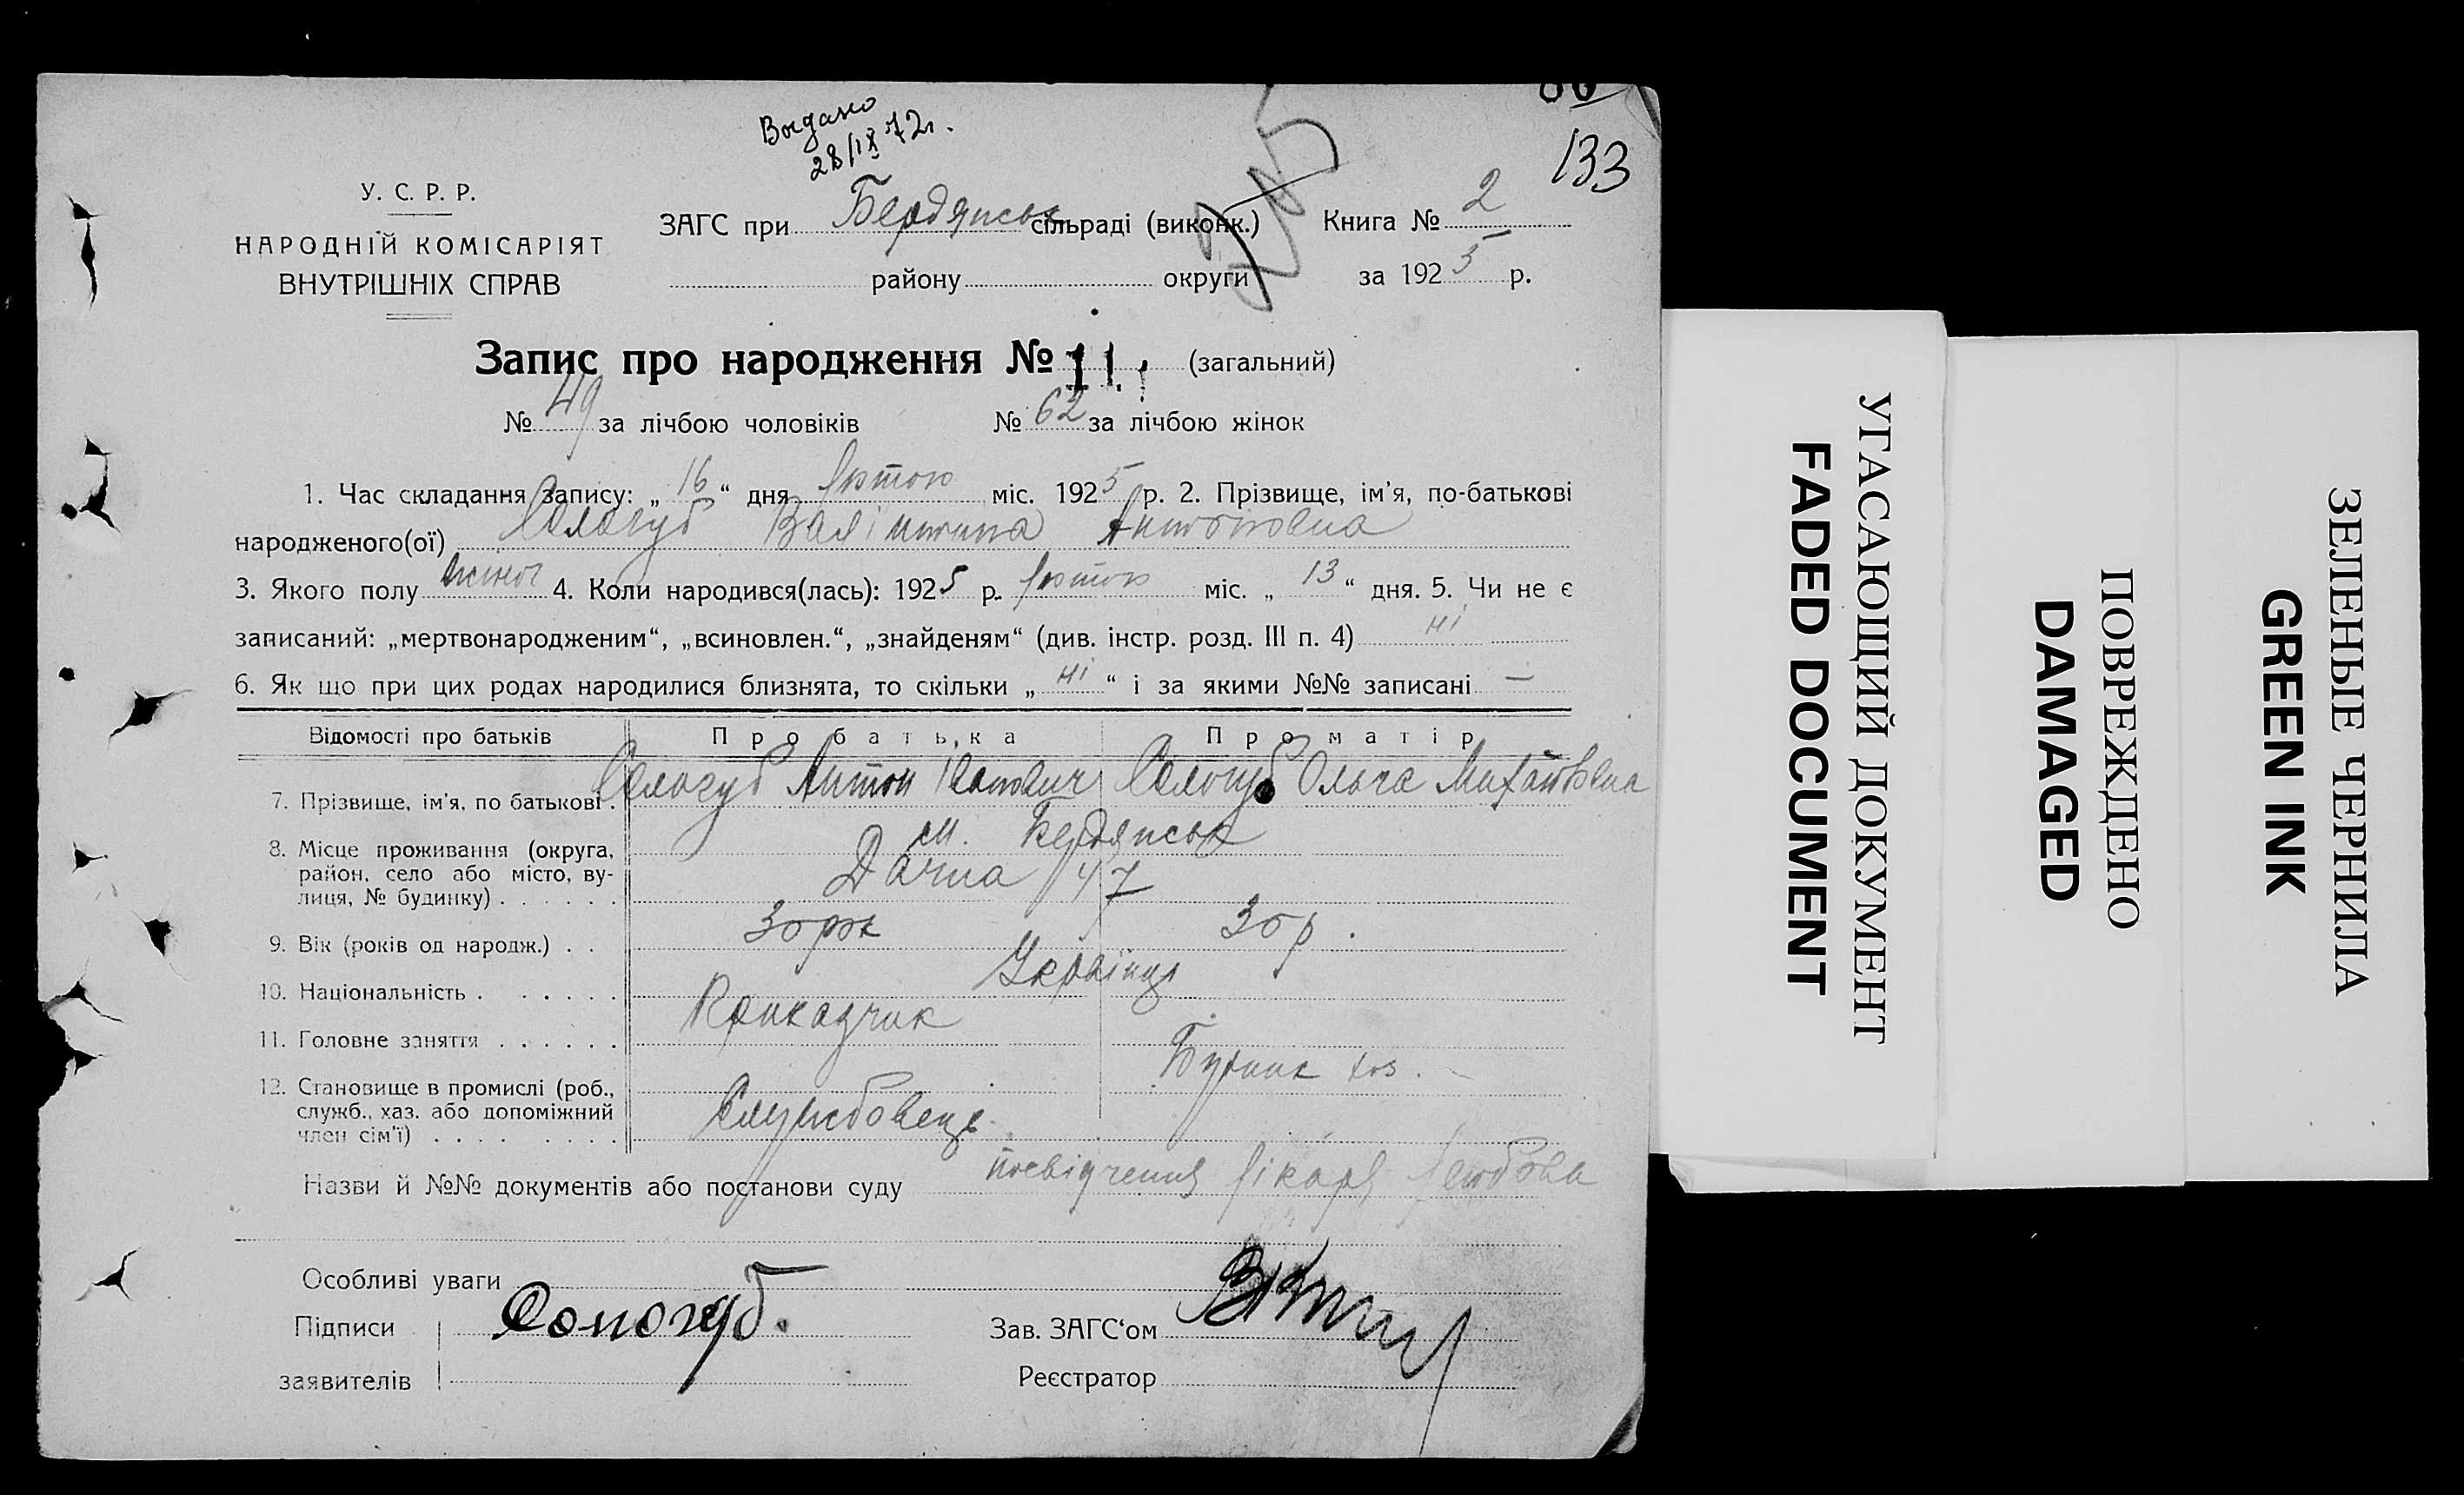 Выдано
28/IX 72г.
133
У. С. Р. Р.
НАРОДНІЙ КОМІСАРІЯТ
ВНУТРІШНІХ СПРАВ
ЗАГС при Бердянськ сільраді (виконк.) Книга № 2
району округи за 1925 р.
Запис про народження № 11 (загальний)
№ 49 за лічбою чоловіків № 62 за лічбою жінок
1. Час складання запису: „16“ дня лютого міс. 1925 р. 2. Прізвище, ім'я, по-батькові
народженого(ої) Сологуб Валінтина Антоновна
3. Якого полу жіноч 4. Коли народився(лась): 1925 р. лютого міс. „13“ дня. 5. Чи не є
записаний: „мертвонародженим“, „всиновлен.“, „знайденям“ (див. інстр. розд. III п. 4) ні
6. Як що при цих родах народилися близнята, то скільки „ні“ і за якими №№ записані —
Відомості про батьків Про батька Про матір
7. Прізвище, ім'я, по батькові. Сологуб Антон Іванович Сологуб Ольга Михайловна
8. Місце проживання (округа, м. Бердянськ
район, село або місто, ву-
лиця, № будинку) . . . . . . Дачна 47
9. Вік (років од народж.) . . 30 рок 30 р.
10. Національність . . . . . . Українці
11. Головне заняття . . . . . . Приказчик
12. Становище в промислі (роб., хоз.
служб., хаз. або допоміжний
член сім'ї) . . . . . . . . Службовець
Назви й №№ документів або постанови суду посвідчення лікаря
Особливі уваги
Підписи Сологуб. Зав. ЗАГС‘ом
заявителів Реєстратор
УГАСАЮЩИЙ ДОКУМЕНТ
FADED DOCUMENT
ПОВРЕЖДЕНО
DAMAGED
ЗЕЛЕНЫЕ ЧЕРНИЛА
GREEN INK